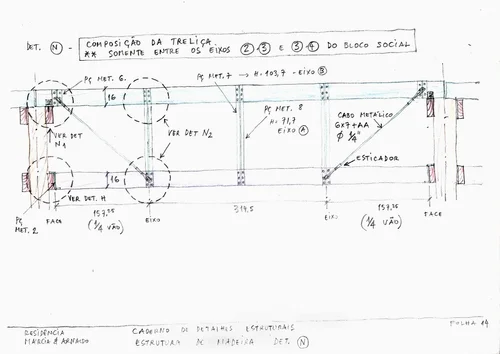 DET. N - COMPOSIÇÃO DA TRELIÇA.
** SOMENTE ENTRE OS EIXOS 2,3 E 3,4 DO BLOCO SOCIAL
PÇ MET. 6.
PÇ MET. 7 → H=103,7 - EIXO B
16
PÇ MET. 8
H=71,7
EIXO A
CABO METÁLICO
6x7+AA
Ø 1/4"
VER DET
N1
VER DET N2
ESTICADOR
16
VER DET. H
PÇ
MET. 2
FACE
157,25
(1/4 VÃO)
EIXO
314,5
EIXO
157,25
(1/4 VÃO)
FACE
RESIDÊNCIA
MARCIA & ARNALDO
CADERNO DE DETALHES ESTRUTURAIS
ESTRUTURA DE MADEIRA DET. N
FOLHA 19